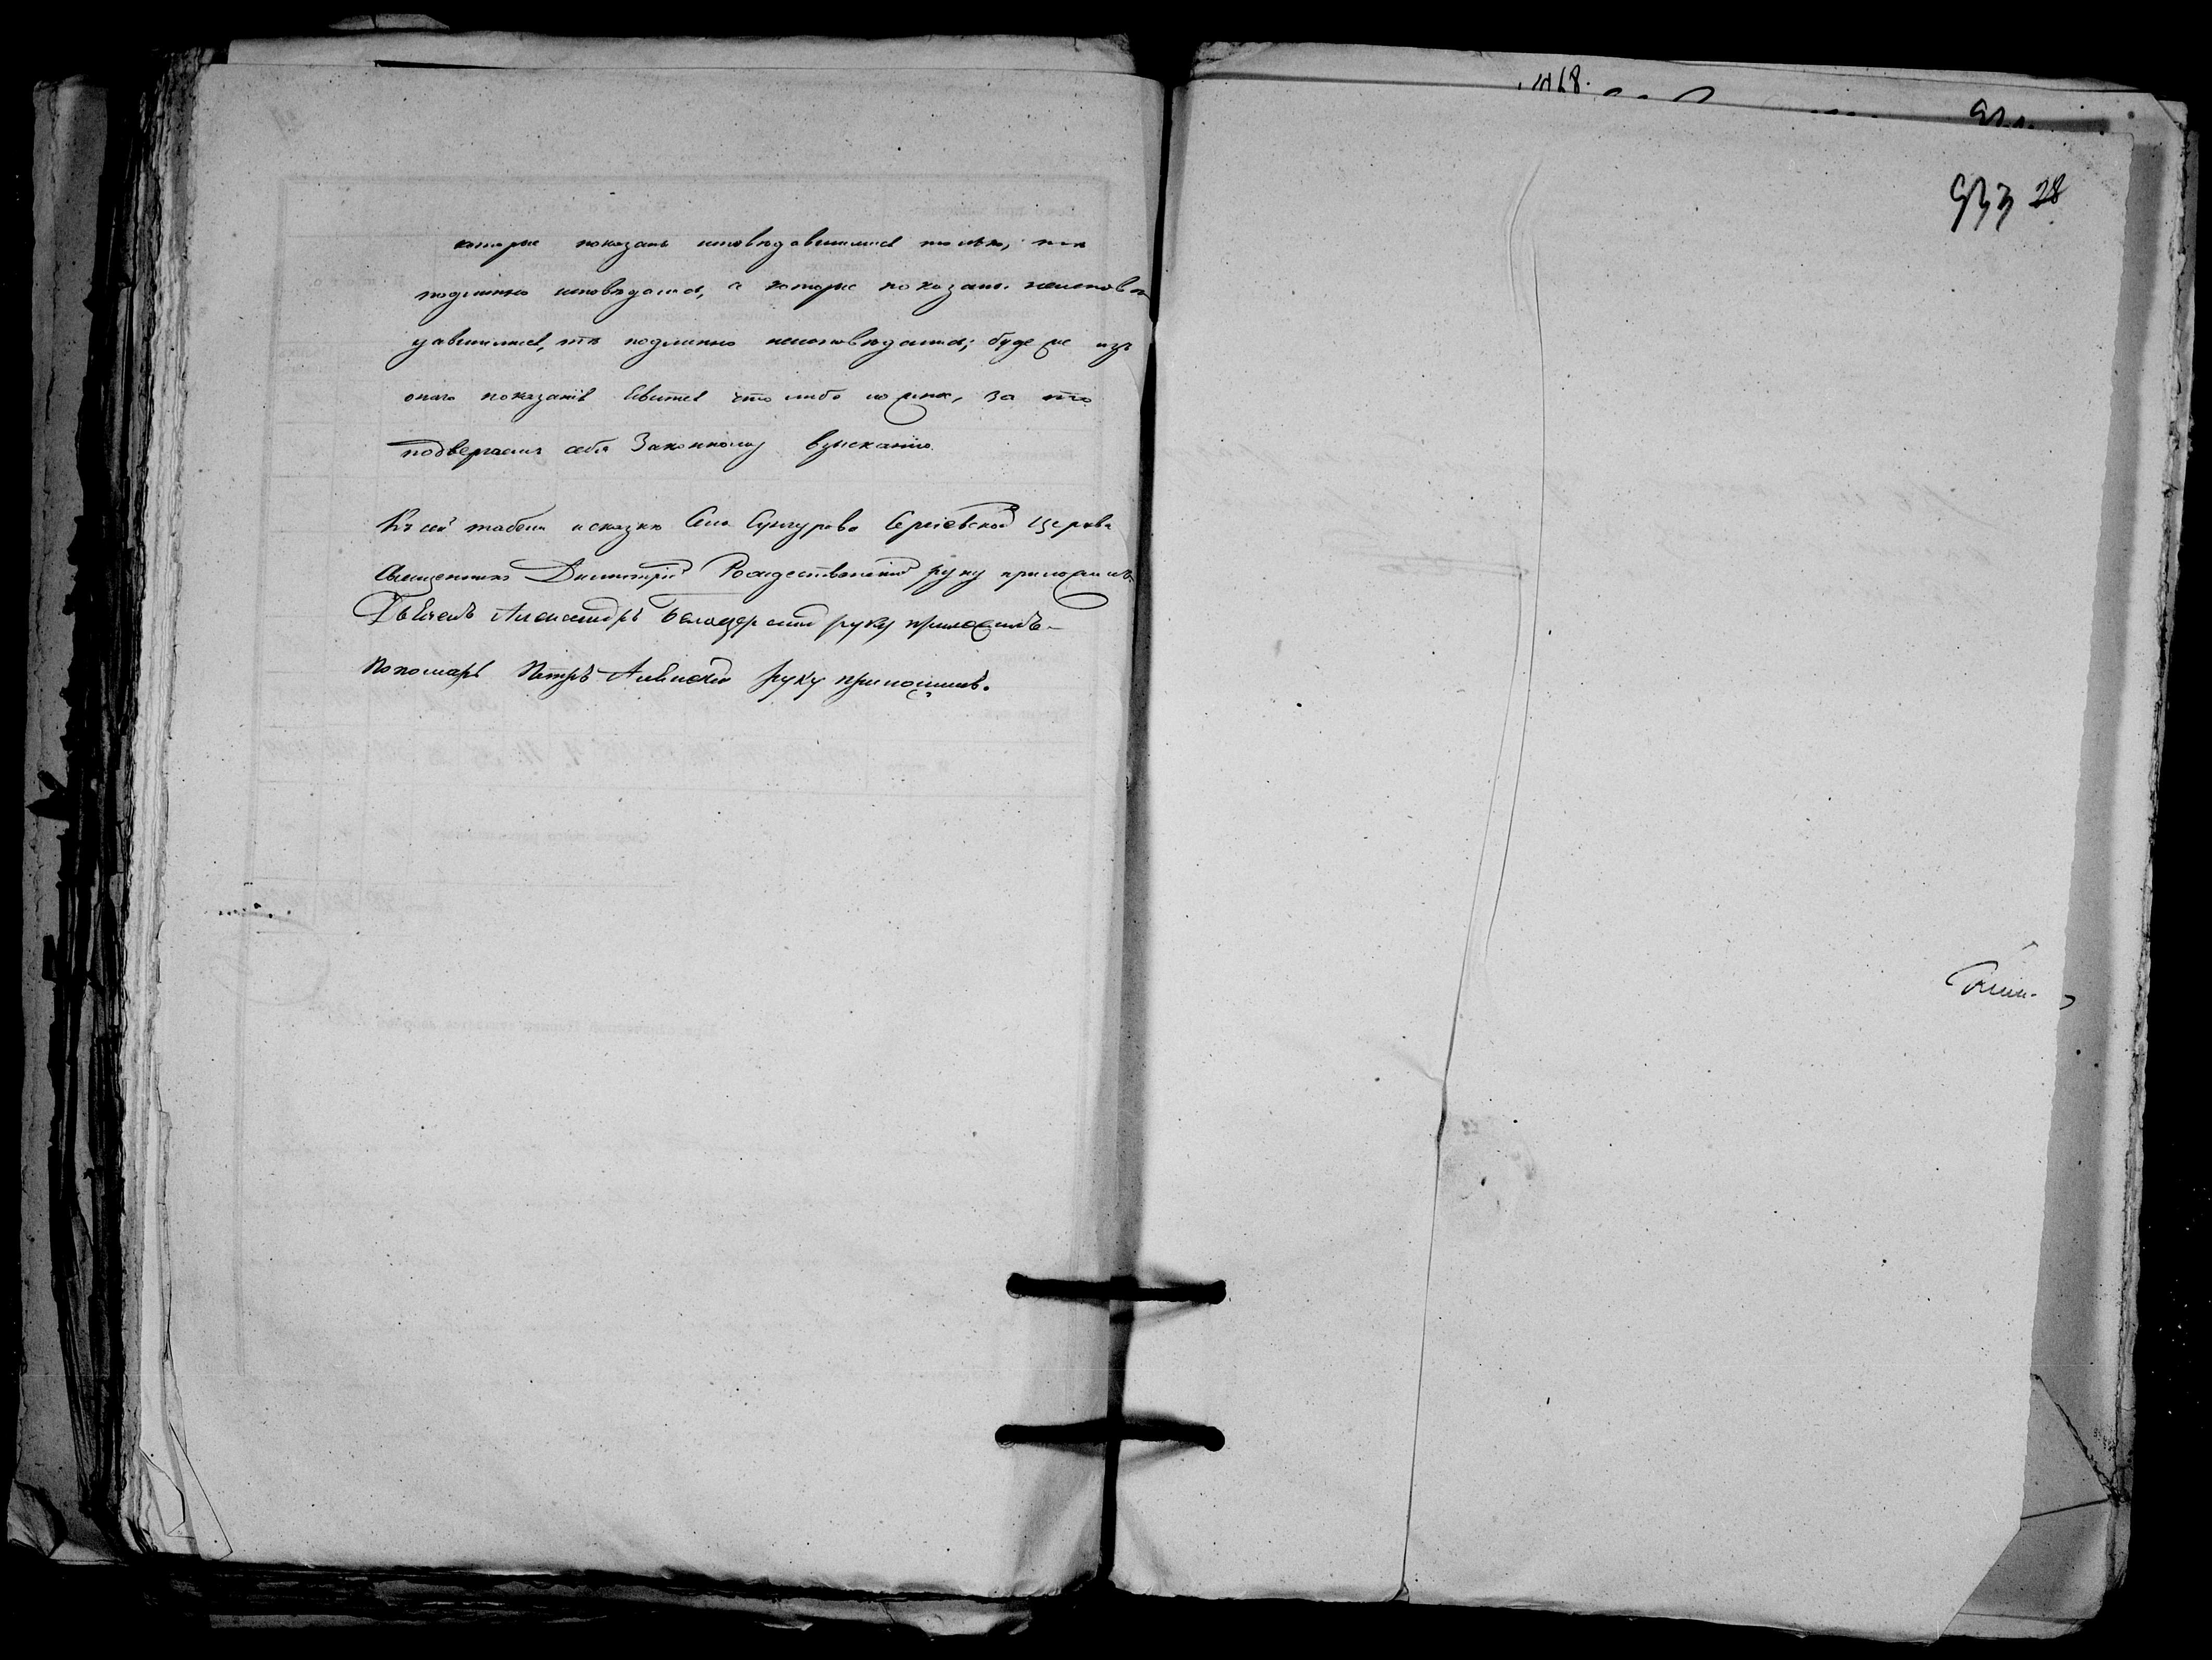 которые показаны исповѣдавшимися только, тѣ
подлинно исповѣдались, а которые показаны неисповѣ
давшимися, тѣ подлинно неисповѣдались; буде же изъ
онаго показанія явится что либо ложно, за то
подвергаемъ себя Законному взысканію.
Къ сей табели и сказкѣ Села Сунгурова Сергіевской церкви
Священникъ Димитрій Рождественскій руку приложилъ
Дьячекъ Александръ Белоцерский руку приложилъ
Пономарь Петръ руку приложилъ.
28